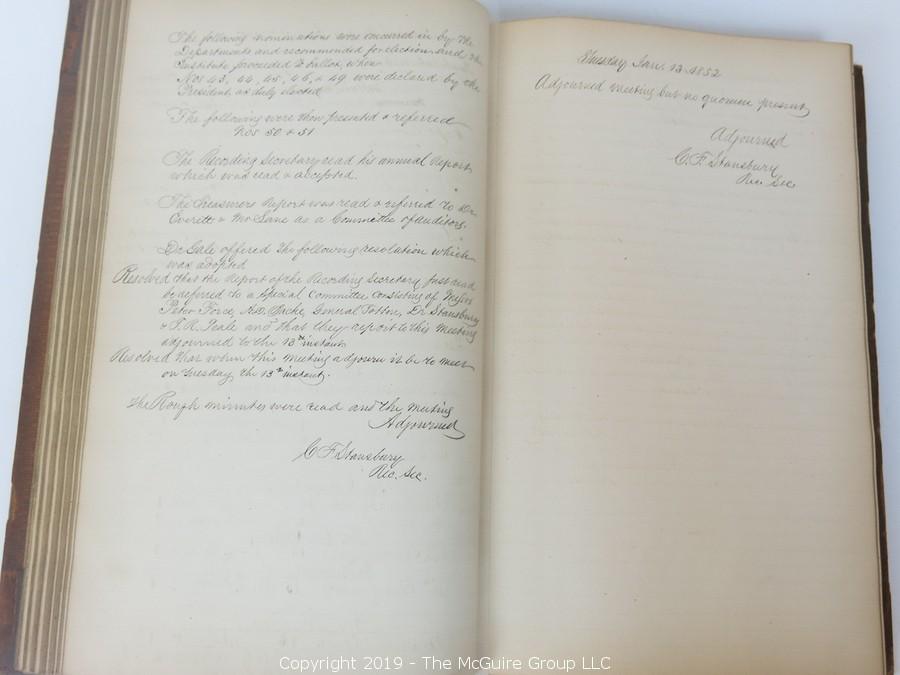 The following nominations were concurred in by the
Departments and recommended for election and the
Institute proceeded to ballot, when
Nos 43, 44, 45, 46, & 49 were declared by the
President as duly elected
The following were then presented & referred
Nos 50 & 51
The Recording Secretary read his annual Report
which was read & accepted.
The Treasurers Report was read & referred to Dr.
Everett & Mr Lane as a Committee of auditors.
Dr Gale offered the following resolution which
was adopted
Resolved that the Report of the Recording Secretary just read
be referred to a Special Committee consisting of Messrs
Peter Force, A.D. Bache, General Totten, Dr Stansbury
& T. R. Peale and that they report to this meeting
adjourned to the 13th instant
Resolved that when this meeting adjourn it be to meet
on Tuesday, the 13th instant.
The Rough minutes were read and the meeting
Adjourned
C F Stansbury
Rec. Sec.
Tuesday Jan. 13. 1852
Adjourned meeting but no quorum present
Adjourned
C. F. Stansbury
Rec. Sec
Copyright 2019 - The McGuire Group LLC